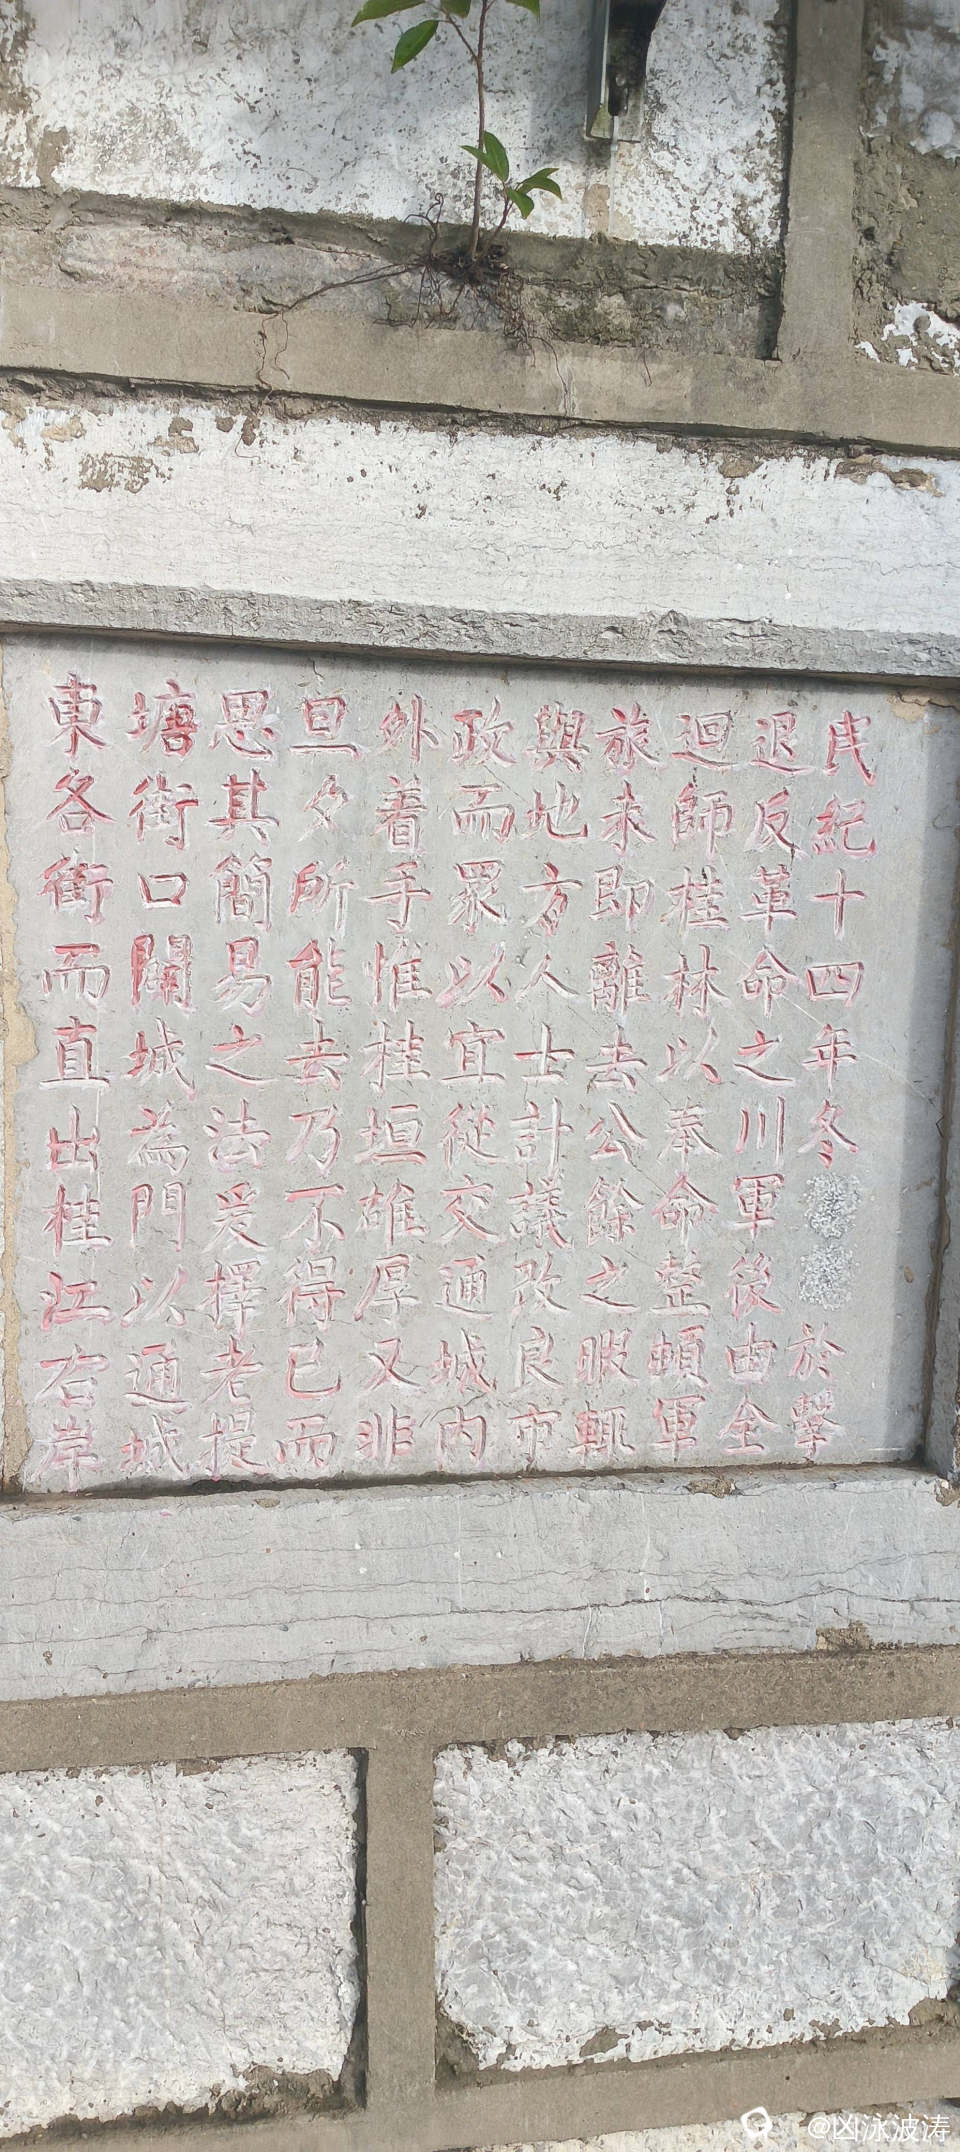 民紀十四年冬於擊
退反革命之川軍後由全
迴師桂林以奉命整頓軍
旅未即離去公餘之暇輒
與地方人士計議改良市
政而眾以宜從交通城内
外着手惟桂垣雄厚又非
旦夕所能去乃不得已而
思其簡易之法爰擇老提
塘街口闢城為門以通城
東各街而直出桂江右岸
@凶泳波涛